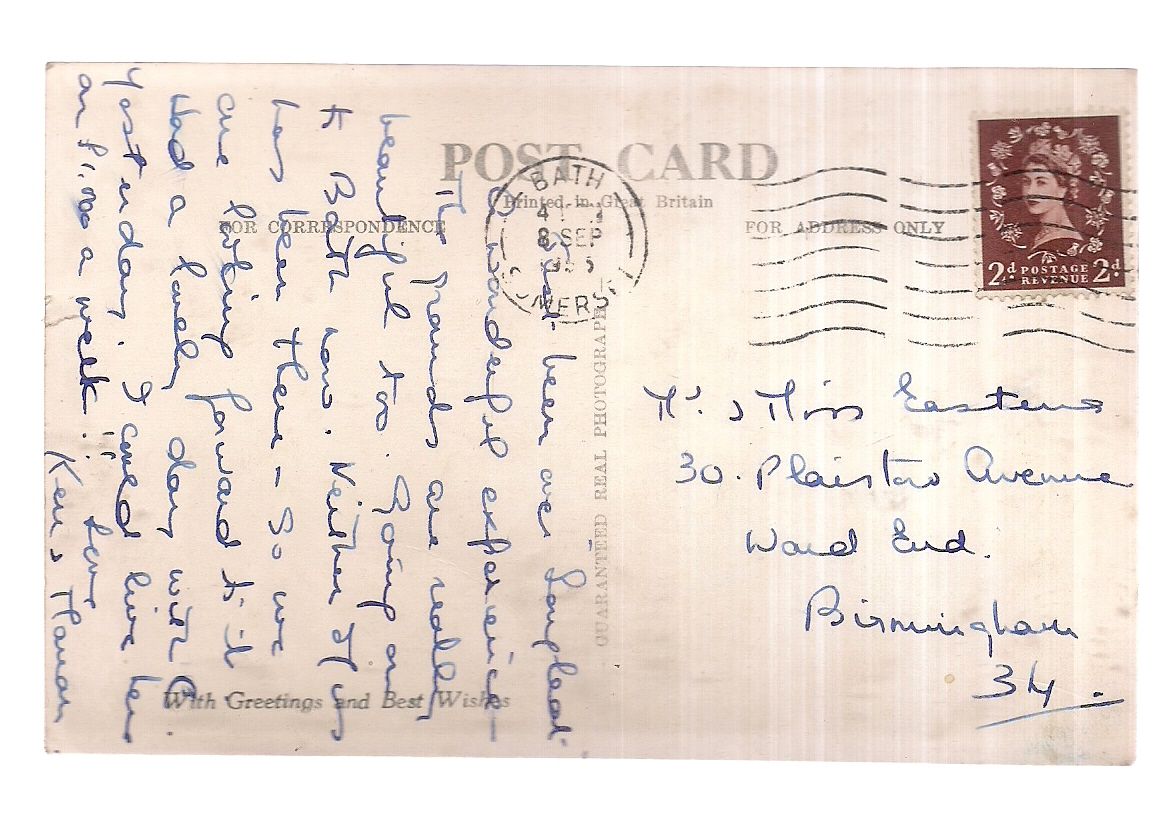 POST CARD
Printed in Great Britain
FOR CORRESPONDENCE
FOR ADDRESS ONLY
BATH
8 SEP
SOMERSET
2d POSTAGE 2d
REVENUE
GUARANTEED REAL PHOTOGRAPH
With Greetings and Best Wishes
been over Longleat
a wonderful experience –
The grounds are really
beautiful too. Going on
to Bath now. Neither of us
has been there – so we
are looking forward to it
Had a lovely day with
yesterday. I could live here
on £1000 a week!!
Love
Ken &
& Miss
30. Plaistow Avenue
Ward End.
Birmingham
34.